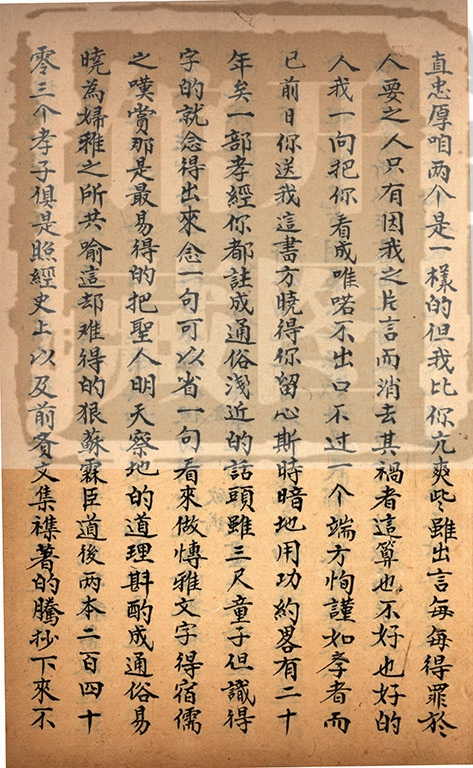 直忠厚咱两个是一樣的但我比你亢爽些雖出言每每得罪於
人要之人只有因我之片言而消去其禍者這算也不好也好的
人我一向把你看成唯喏不出口不过一个端方恂謹如孝者而
已前日你送我這書方曉得你留心斯時暗地用功約畧有二十
年矣一部孝經你都註成通俗淺近的話頭雖三尺童子但識得
字的就念得出來念一句可以省一句看來做慱雅文字得宿儒
之嘆賞那是最易得的把聖人明天察地的道理斟酌成通俗易
曉為婦雅之所共喻這却难得的狠蘇霖臣道後两本二百四十
零三个孝子俱是照經史上以及前賢文集襍著的騰抄下來不